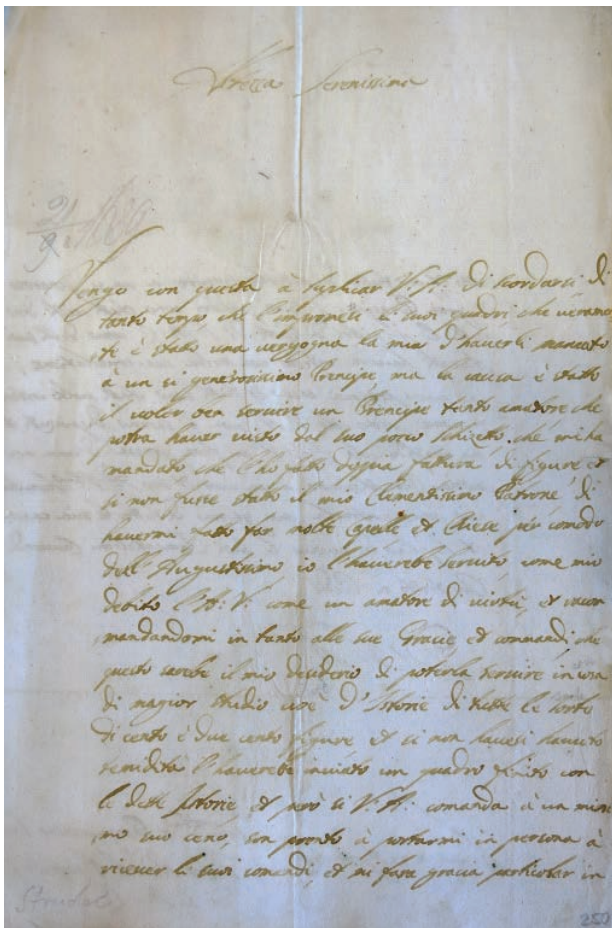 Altezza Serenissima
Vengo con questa à suplicar V: A: di scordarsi di
tanto tempo che l'impromesi i suoi quadri che veramen
te è stato una vergogna la mia d'haverli mancato
à un si generosissimo Prencipe, ma la causa è stato
il voler ora servire un Prencipe tanto amatore che
potra haver visto dal suo poco schizetto, che mi ha
mandato, che l'ho fatto dopia fattura di figure et
si non fusse stato il mio Clementissimo Patrone di
havermi fatto far molte Capelle et Chiese per comodo
dell' Augustissimo io l'haverebe servito, come mio
debito l'A: V: come un amatore di virtù, et racom
mandandomi in tanto alle sue Gracie, et commandi che
questo sarebe il mio desiderio di poterla servire in cosa
di magior studio cioè d'Istorie di tutte le sorte
di cento è due cento figure, et si non havesi havuto
temidità l'haverebe inviato un quadro finito con
le dette Istorie et però si V: A: comanda à un mini
mo suo ceno, son pronto à portarmi in persona à
ricever li suoi comandi, et mi fara gracia particolar in
Strudel
252